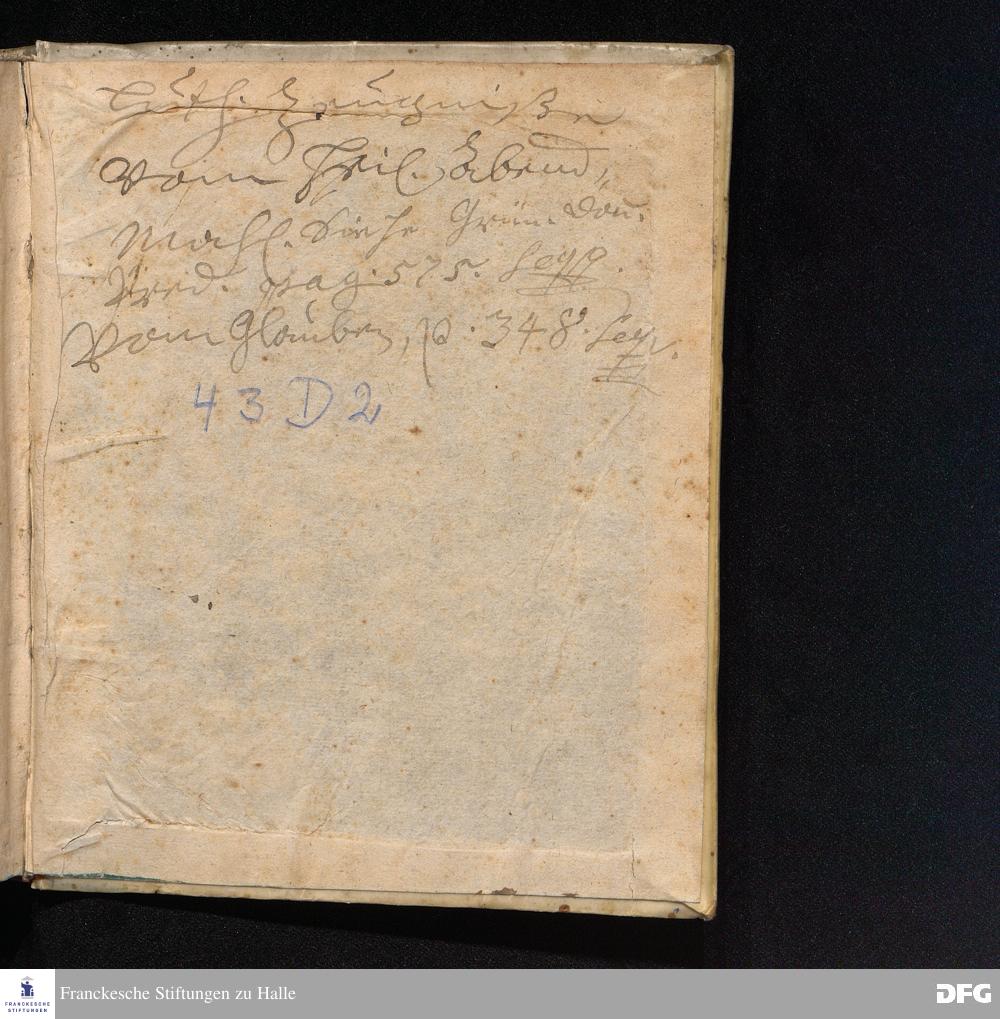 Luth. Zeugniße
vom Heil. Abend,
Mahl. Siehe Grün. Dom.
Pred. pag. 575. seqq.
Vom Glauben, p. 348. seqq.
43 D 2
Franckesche Stiftungen zu Halle
FRANCKESCHE
STIFTUNGEN
DFG